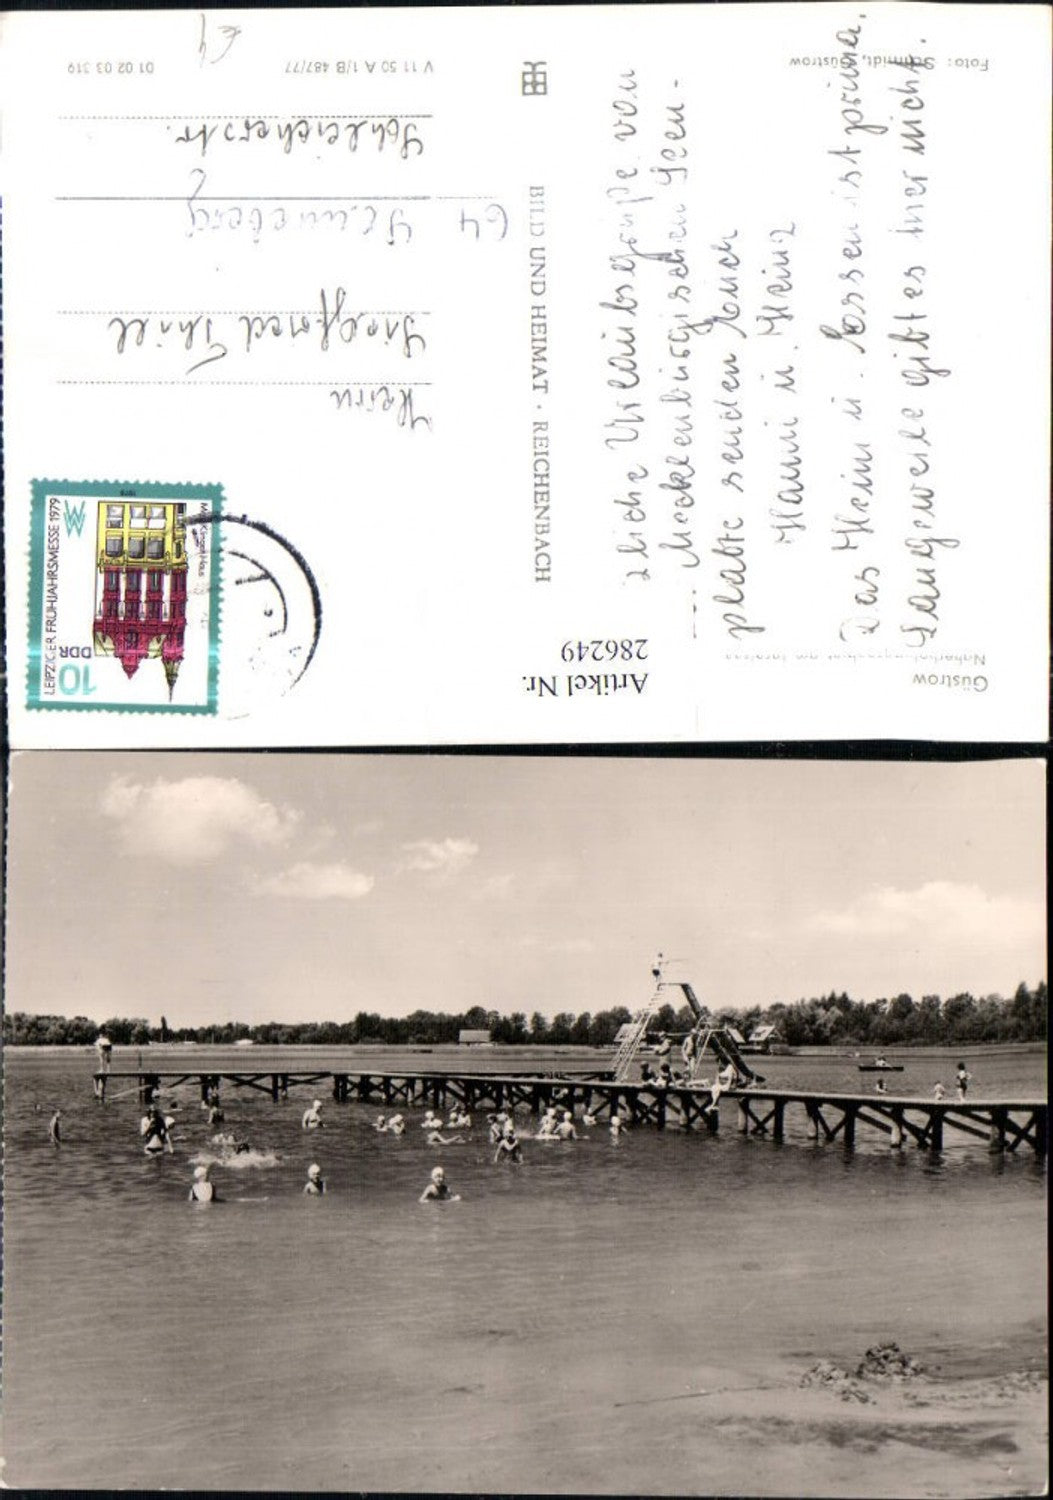 Güstrow
Naherholungsgebiet am Inselsee
Artikel Nr.
286249
zliche Urlaubsgrüße von
Mecklenburgischen Seen-
platte senden Euch
Hanni u. Heinz
Das Heim u. Essen ist prima.
Langeweile gibt es hier nicht.
Foto: Schmidt, Güstrow
BILD UND HEIMAT · REICHENBACH
LEIPZIGER FRÜHJAHRSMESSE 1979
10
DDR
1979
Herrn
Siegfried Thiel
64 Sonneberg 2
Schleicherstr.
V 11 50 A 1/B 487/77
01 02 03 319
€4